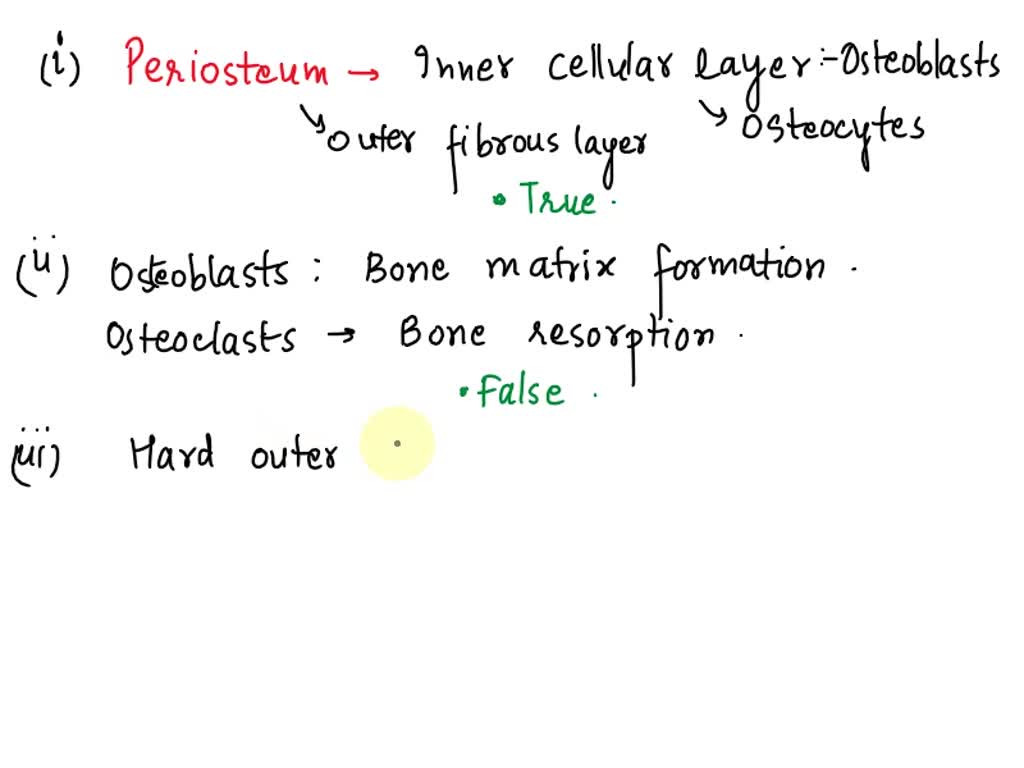 (i) Periosteum → Inner cellular layer :- Osteoblasts
↘ outer fibrous layer ↘ Osteocytes
• True .
(ii) Osteoblasts : Bone matrix formation .
Osteoclasts → Bone resorption .
• False .
(iii) Hard outer